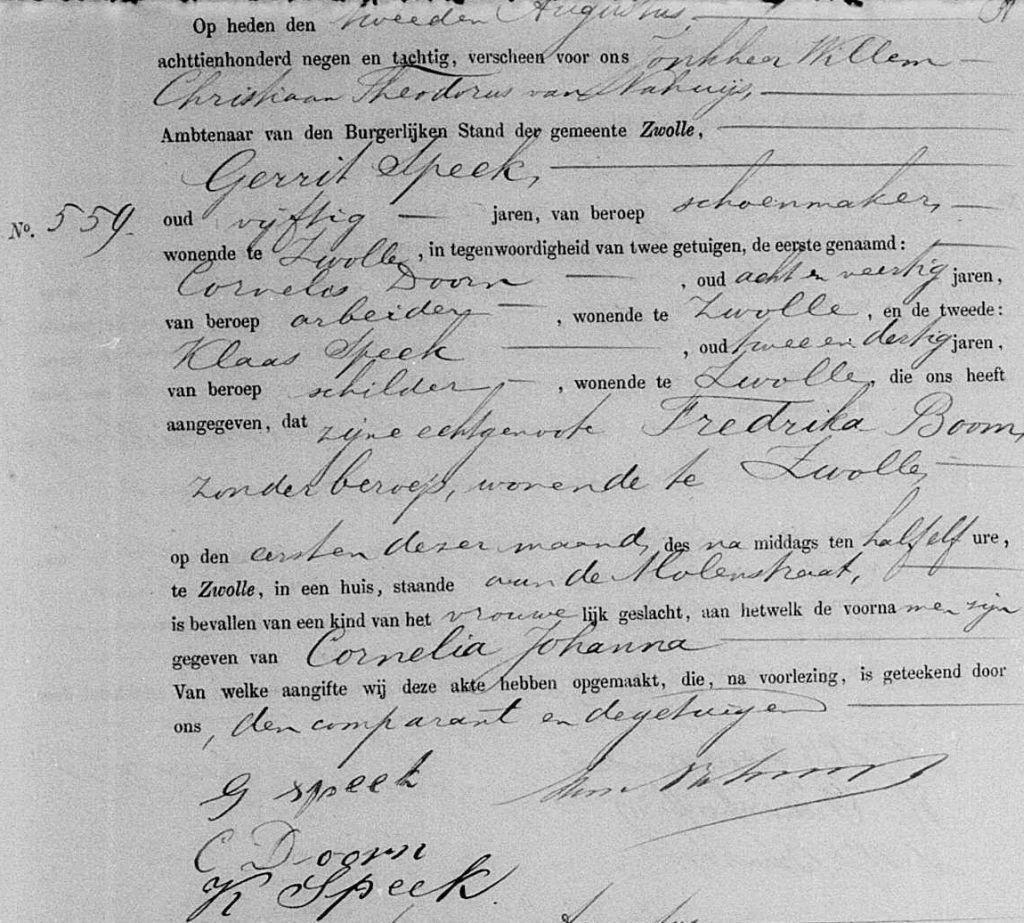 Op heden den tweeden Augustus
achttienhonderd negen en tachtig, verscheen voor ons Jonkheer Willem
Christiaan Theodorus van Nahuijs,
Ambtenaar van den Burgerlijken Stand der gemeente Zwolle,
Gerrit Speek,
No. 559. oud vijftig jaren, van beroep schoenmaker,
wonende te Zwolle, in tegenwoordigheid van twee getuigen, de eerste genaamd:
Cornelis Doorn, oud acht en veertig jaren,
van beroep arbeider, wonende te Zwolle, en de tweede:
Klaas Speek, oud twee en dertig jaren,
van beroep schilder, wonende te Zwolle, die ons heeft
aangegeven, dat zijne echtgenoote Fredrika Boom,
zonder beroep, wonende te Zwolle,
op den eersten dezer maand, des na middags ten half elf ure,
te Zwolle, in een huis, staande aan de Molenstraat,
is bevallen van een kind van het vrouwe lijk geslacht, aan hetwelk de voorna men zijn
gegeven van Cornelia Johanna
Van welke aangifte wij deze akte hebben opgemaakt, die, na voorlezing, is geteekend door
ons, den comparant en de getuigen
G Speek
C Doorn
K Speek.